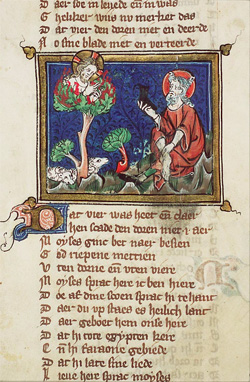 D aer soe in leuede en̄ in was
G heliker wijs nu merket das
D at vier den doren niet en deerde
N o sine blade niet en verteerde
D at vier was heet en̄ claer
H en scade den doren niet .i. aer
M oyses ginc bet naer besien
G od riepene mettien
U ten dorne en̄ vten viere
M oyses sprac here ic ben hiere
D oe dine scoen sprac hi te hant
D aer du up staes es heilich lant
D aer geboet hem onse here
D at hi tote egypten keer
E n̄ hi faraone gebiede
D at hi late sine liede
L ieue here sprac moyses